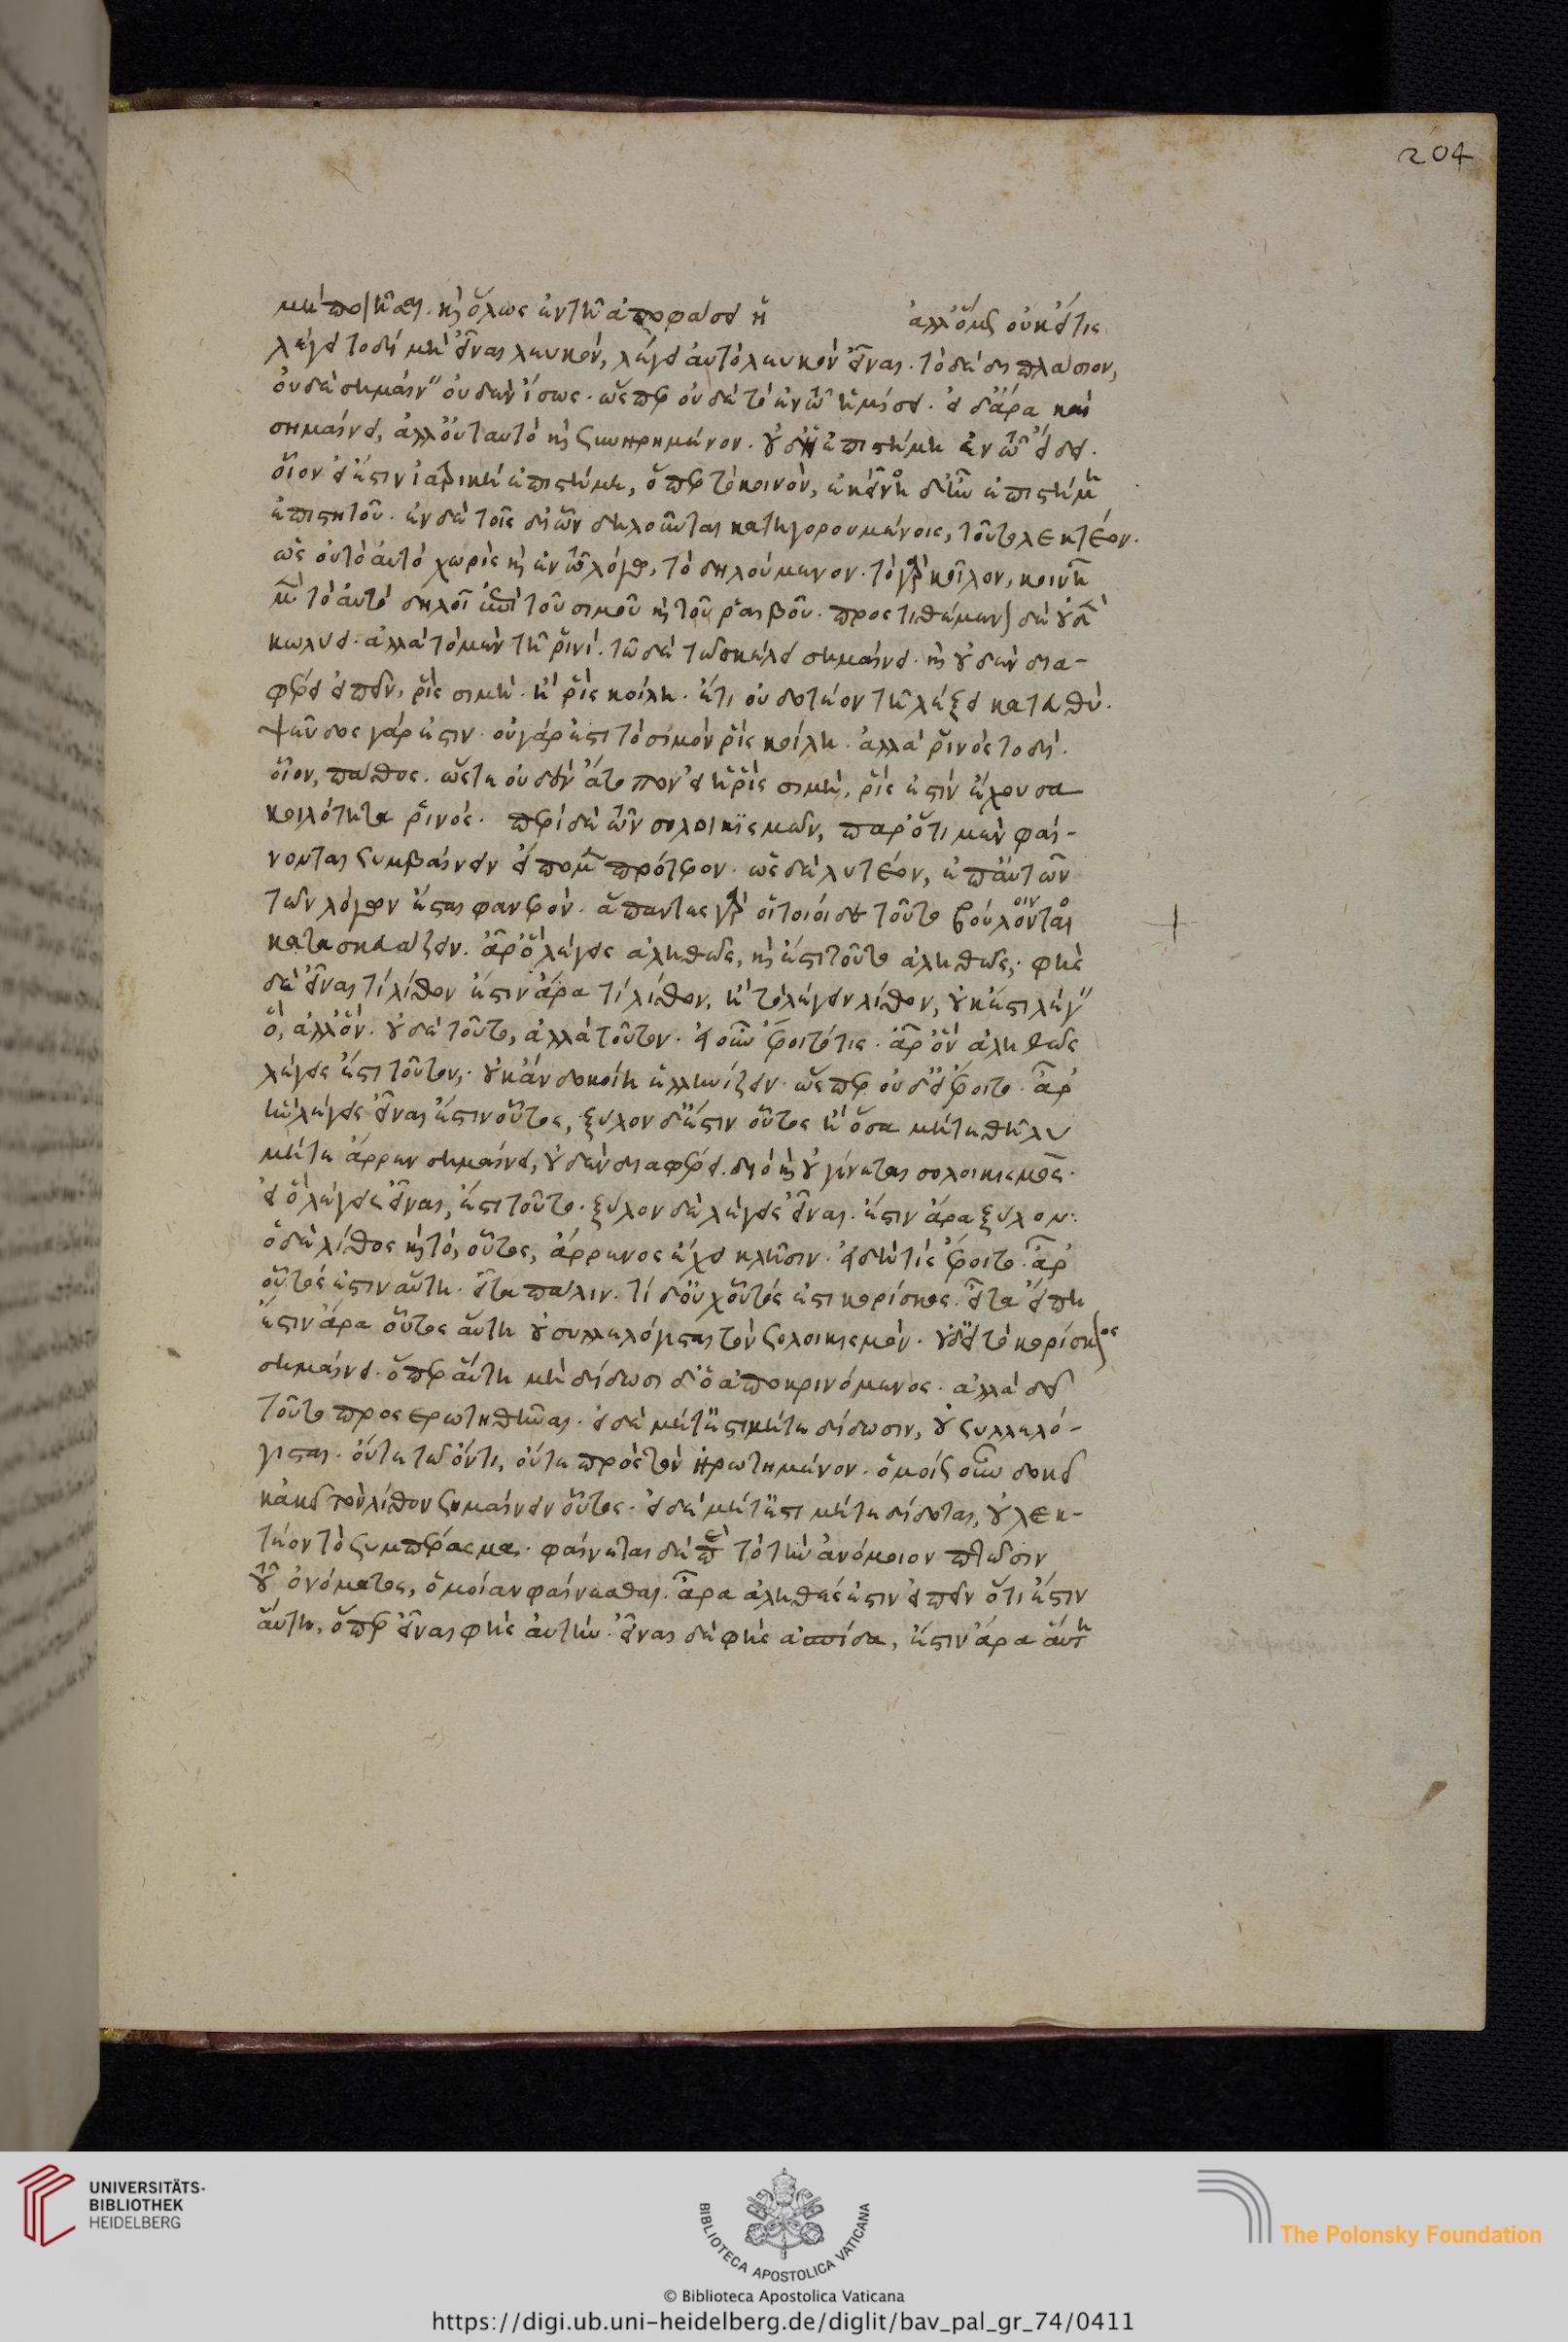 μὴ ποιῆσαι. καὶ ὅλως ἐν τῆ ἀποφάσει ἡ ἀλλ' ὅμως οὐκ εἴ τις
λέγει τοδὶ μὴ εἶναι λευκόν, λέγει αὐτὸ λευκὸν εἶναι. τὸ δὲ διπλάσιον,
οὐδὲ σημαίνει οὐδὲν ἴσως. ὥσπερ οὐδὲ τὸ ἐν τῶ ἡμίσει. εἰ δ' ἄρα καὶ
σημαίνει, ἀλλ' οὐ ταυτὸ καὶ συνηρημένον. οὐδ' ἡ ἐπιστήμη ἐν τῶ εἴδει.
οἷον εἰ ἔστιν ἰατρικὴ ἐπιστήμη, ὅπερ τὸ κοινόν, ἐκεῖνο δ' ἦν ἐπιστήμη
ἐπιστητοῦ. ἐν δὲ τοῖς δι' ὧν δηλοῦνται κατηγορουμένοις, τοῦτο λεκτέον.
ὡς οὐ τὸ αὐτὸ χωρὶς καὶ ἐν τῶ λόγω, τὸ δηλούμενον. τὸ γὰρ κοῖλον, κοινῆ
μὲν τὸ αὐτὸ δηλοῖ ἐπὶ τοῦ σιμοῦ καὶ τοῦ ῥαιβοῦ. προστιθέμενον δὲ οὐδὲν
κωλύει. ἀλλὰ τὸ μὲν τῆ ῥινί. τὸ δὲ τῶ σκέλει σημαίνει. καὶ οὐδὲν δια-
φέρει εἰπεῖν, ῥὶς σιμή. ἢ ῥὶς κοίλη. ἔτι οὐ δοτέον τὴν λέξει κατ' εὐθύ.
ψεῦδος γάρ ἐστιν. οὐ γάρ ἐστι τὸ σιμὸν ῥὶς κοίλη. ἀλλὰ ῥινὸς τοδί.
οἷον, πάθος. ὥστε οὐδὲν ἄτοπον εἰ ἡ ῥὶς σιμὴ, ῥίς ἐστιν ἔχουσα
κοιλότητα ῥινός. περὶ δὲ τῶν σολοικισμῶν, παρ' ὅτι μὲν φαί-
νονται συμβαίνειν εἴπομεν πρότερον. ὡς δὲ λυτέον, ἐπ' αὐτῶν
τῶν λόγων ἔσται φανερόν. ἅπαντες γὰρ οἱ τοιοίδε τοῦτο βούλονται
κατασκευάζειν. ἆρ' ὃ λέγεις ἀληθῶς, καὶ ἔστι τοῦτο ἀληθῶς; φὴς
δὲ εἶναι τί λίθον ἔστιν ἄρα τί λίθον. ἢ τὸ λέγειν λίθον, οὐκ ἔστι λέγειν
ὅ, ἀλλ' ὅν. οὐδὲ τοῦτο, ἀλλὰ τοῦτον. εἰ οὖν ἔροιτό τις. ἆρ' ὃν ἀληθῶς
λέγεις ἔστι τοῦτον; οὐκ ἂν δοκοίη ἑλληνίζειν. ὥσπερ οὐδ' εἰ ἔροιτο. ἆρ'
ἣν λέγεις εἶναι ἔστιν οὗτος, ξύλον δ' ἔστιν οὗτος ἢ ὅσα μήτε θῆλυ
μήτε ἄρρεν σημαίνει, οὐδὲν διαφέρει. διὸ καὶ οὐ γίνεται σολοικισμός.
εἰ ὃ λέγεις εἶναι, ἔστι τοῦτο. ξύλον δὲ λέγεις εἶναι. ἔστιν ἄρα ξύλον.
ὁ δὲ λίθος καὶ τὸ, οὗτος, ἄρρενος ἔχει κλῆσιν. εἰ δή τις ἔροιτο. ἆρ'
οὗτός ἐστιν αὕτη. εἶτα πάλιν. τί δ' οὐχ οὗτός ἐστι κορίσκος. εἶτα εἴπη
ἔστιν ἄρα οὗτος αὕτη οὐ συλλελόγισται τὸν σολοικισμόν. οὐδ' εἰ τὸ κορίσκος
σημαίνει. ὅπερ αὕτη μὴ δίδωσι δ' ὁ ἀποκρινόμενος. ἀλλὰ δεῖ
τοῦτο προσερωτηθῆναι. εἰ δὲ μήτ' ἔστι μήτε δίδωσιν, οὐ συλλελό-
γισται. οὔτε τῶ ὄντι, οὔτε πρὸς τὸν ἠρωτημένον. ὁμοίως οὖν δοκεῖ
κἀκεῖ τὸν λίθον σημαίνειν οὗτος. εἰ δὲ μήτ' ἔστι μήτε δίδοται, οὐ λεκ-
τέον τὸ συμπέρασμα. φαίνεται δὲ παρὰ τὸ τὴν ἀνόμοιον πτῶσιν
τοῦ ὀνόματος, ὁμοίαν φαίνεσθαι. ἆρα ἀληθές ἐστιν εἰπεῖν ὅτι ἔστιν
αὕτη, ὅπερ εἶναι φὴς αὐτήν. εἶναι δὲ φὴς ἀσπίδα, ἔστιν ἄρα αὕτη
204
UNIVERSITÄTS-
BIBLIOTHEK
HEIDELBERG
BIBLIOTECA APOSTOLICA VATICANA
The Polonsky Foundation
© Biblioteca Apostolica Vaticana
https://digi.ub.uni-heidelberg.de/diglit/bav_pal_gr_74/0411